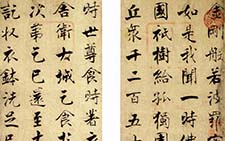 金剛般若波羅
如是我聞一時佛
國祇樹給孤獨園
丘衆千二百五十
時世尊食時著
舍衛大城乞食
次第乞已還至
訖收衣鉢洗足